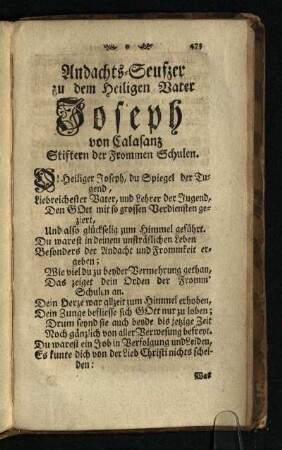 473
Andachts-Seufzer
zu dem Heiligen Vater
Joseph
von Calasanz
Stiftern der Frommen Schulen.
O! Heiliger Joseph, du Spiegel der Tu-
gend,
Liebreichester Vater, und Lehrer der Jugend,
Den GOtt mit so grossen Verdiensten ge-
ziert,
Und also glückselig zum Himmel geführt.
Du warest in deinem unsträflichen Leben
Besonders der Andacht und Frommkeit er-
geben;
Wie viel du zu beyder Vermehrung gethan,
Das zeiget dein Orden der Fromm'
Schulen an.
Dein Herze war allzeit zum Himmel erhoben,
Dein Zunge beflisse sich GOtt nur zu loben;
Drum seynd sie auch beyde bis jezige Zeit
Noch gänzlich von aller Verwesung befreyt.
Du warest ein Job in Verfolgung und Leiden,
Es kunte dich von der Lieb Christi nichts schei-
den:
Was